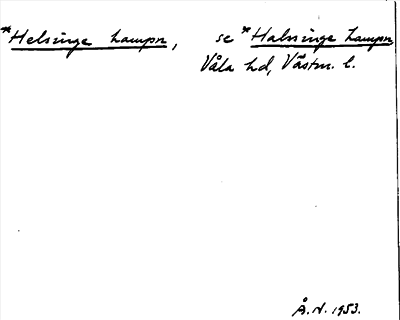 *Helsinge hampn, se *Halsinge hampn
Våla hd, Västm. l.
Å.N. 1953.